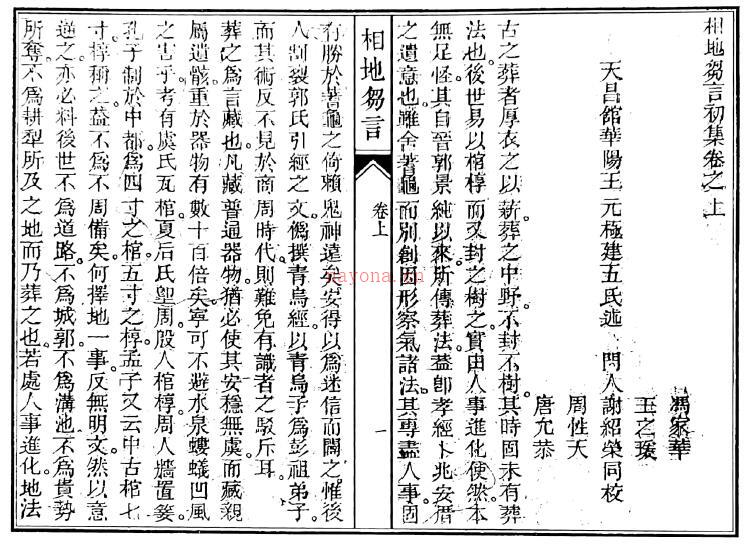 相地芻言初集卷之上
馮家華
王之
天昌館華陽王元極建五氏述 門人謝紹榮同校
周性天
唐允恭
古之葬者厚衣之以薪葬之中野不封不樹其時固未有葬
法也後世易以棺椁而又封之樹之實由人事進化使然本
無足怪其自晉郭景純以來所傳葬法葢卽孝經卜兆安厝
之遺意也雖舍蓍龜而別創形察氣諸法其專盡人事固
相地芻言
卷上
一
有勝於蓍龜之倚賴鬼神遠矣安得以爲迷信而闢之惟後
人割裂郭氏引經之文僞撰青烏經以青烏子爲彭祖弟子
而其術反不見於商周時代則難免有識者之駁斥耳
葬之爲言藏也凡藏普通器物猶必使其安穩無虞而藏親
屬遺骸重於器物有數十百倍矣寧可不避水泉螻蟻凹風
之害乎考有虞氏瓦棺夏后氏堲周殷人棺椁周人牆置翣
孔子制於中都爲四寸之棺五寸之椁孟子又云中古棺七
寸椁稱之葢不爲不周備矣何擇地一事反無明文然以意
逆之亦必料後世不爲道路不爲城郭不爲溝池不爲貴勢
所奪不爲耕犁所及之地而乃葬之也若處人事進化地法